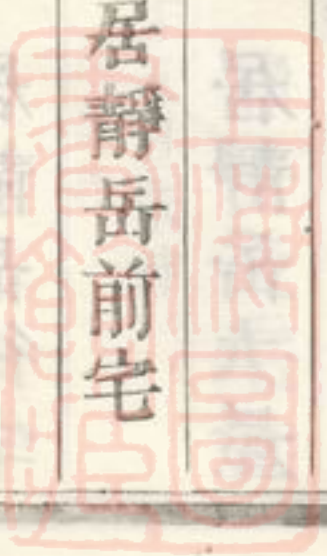 居靜岳前宅